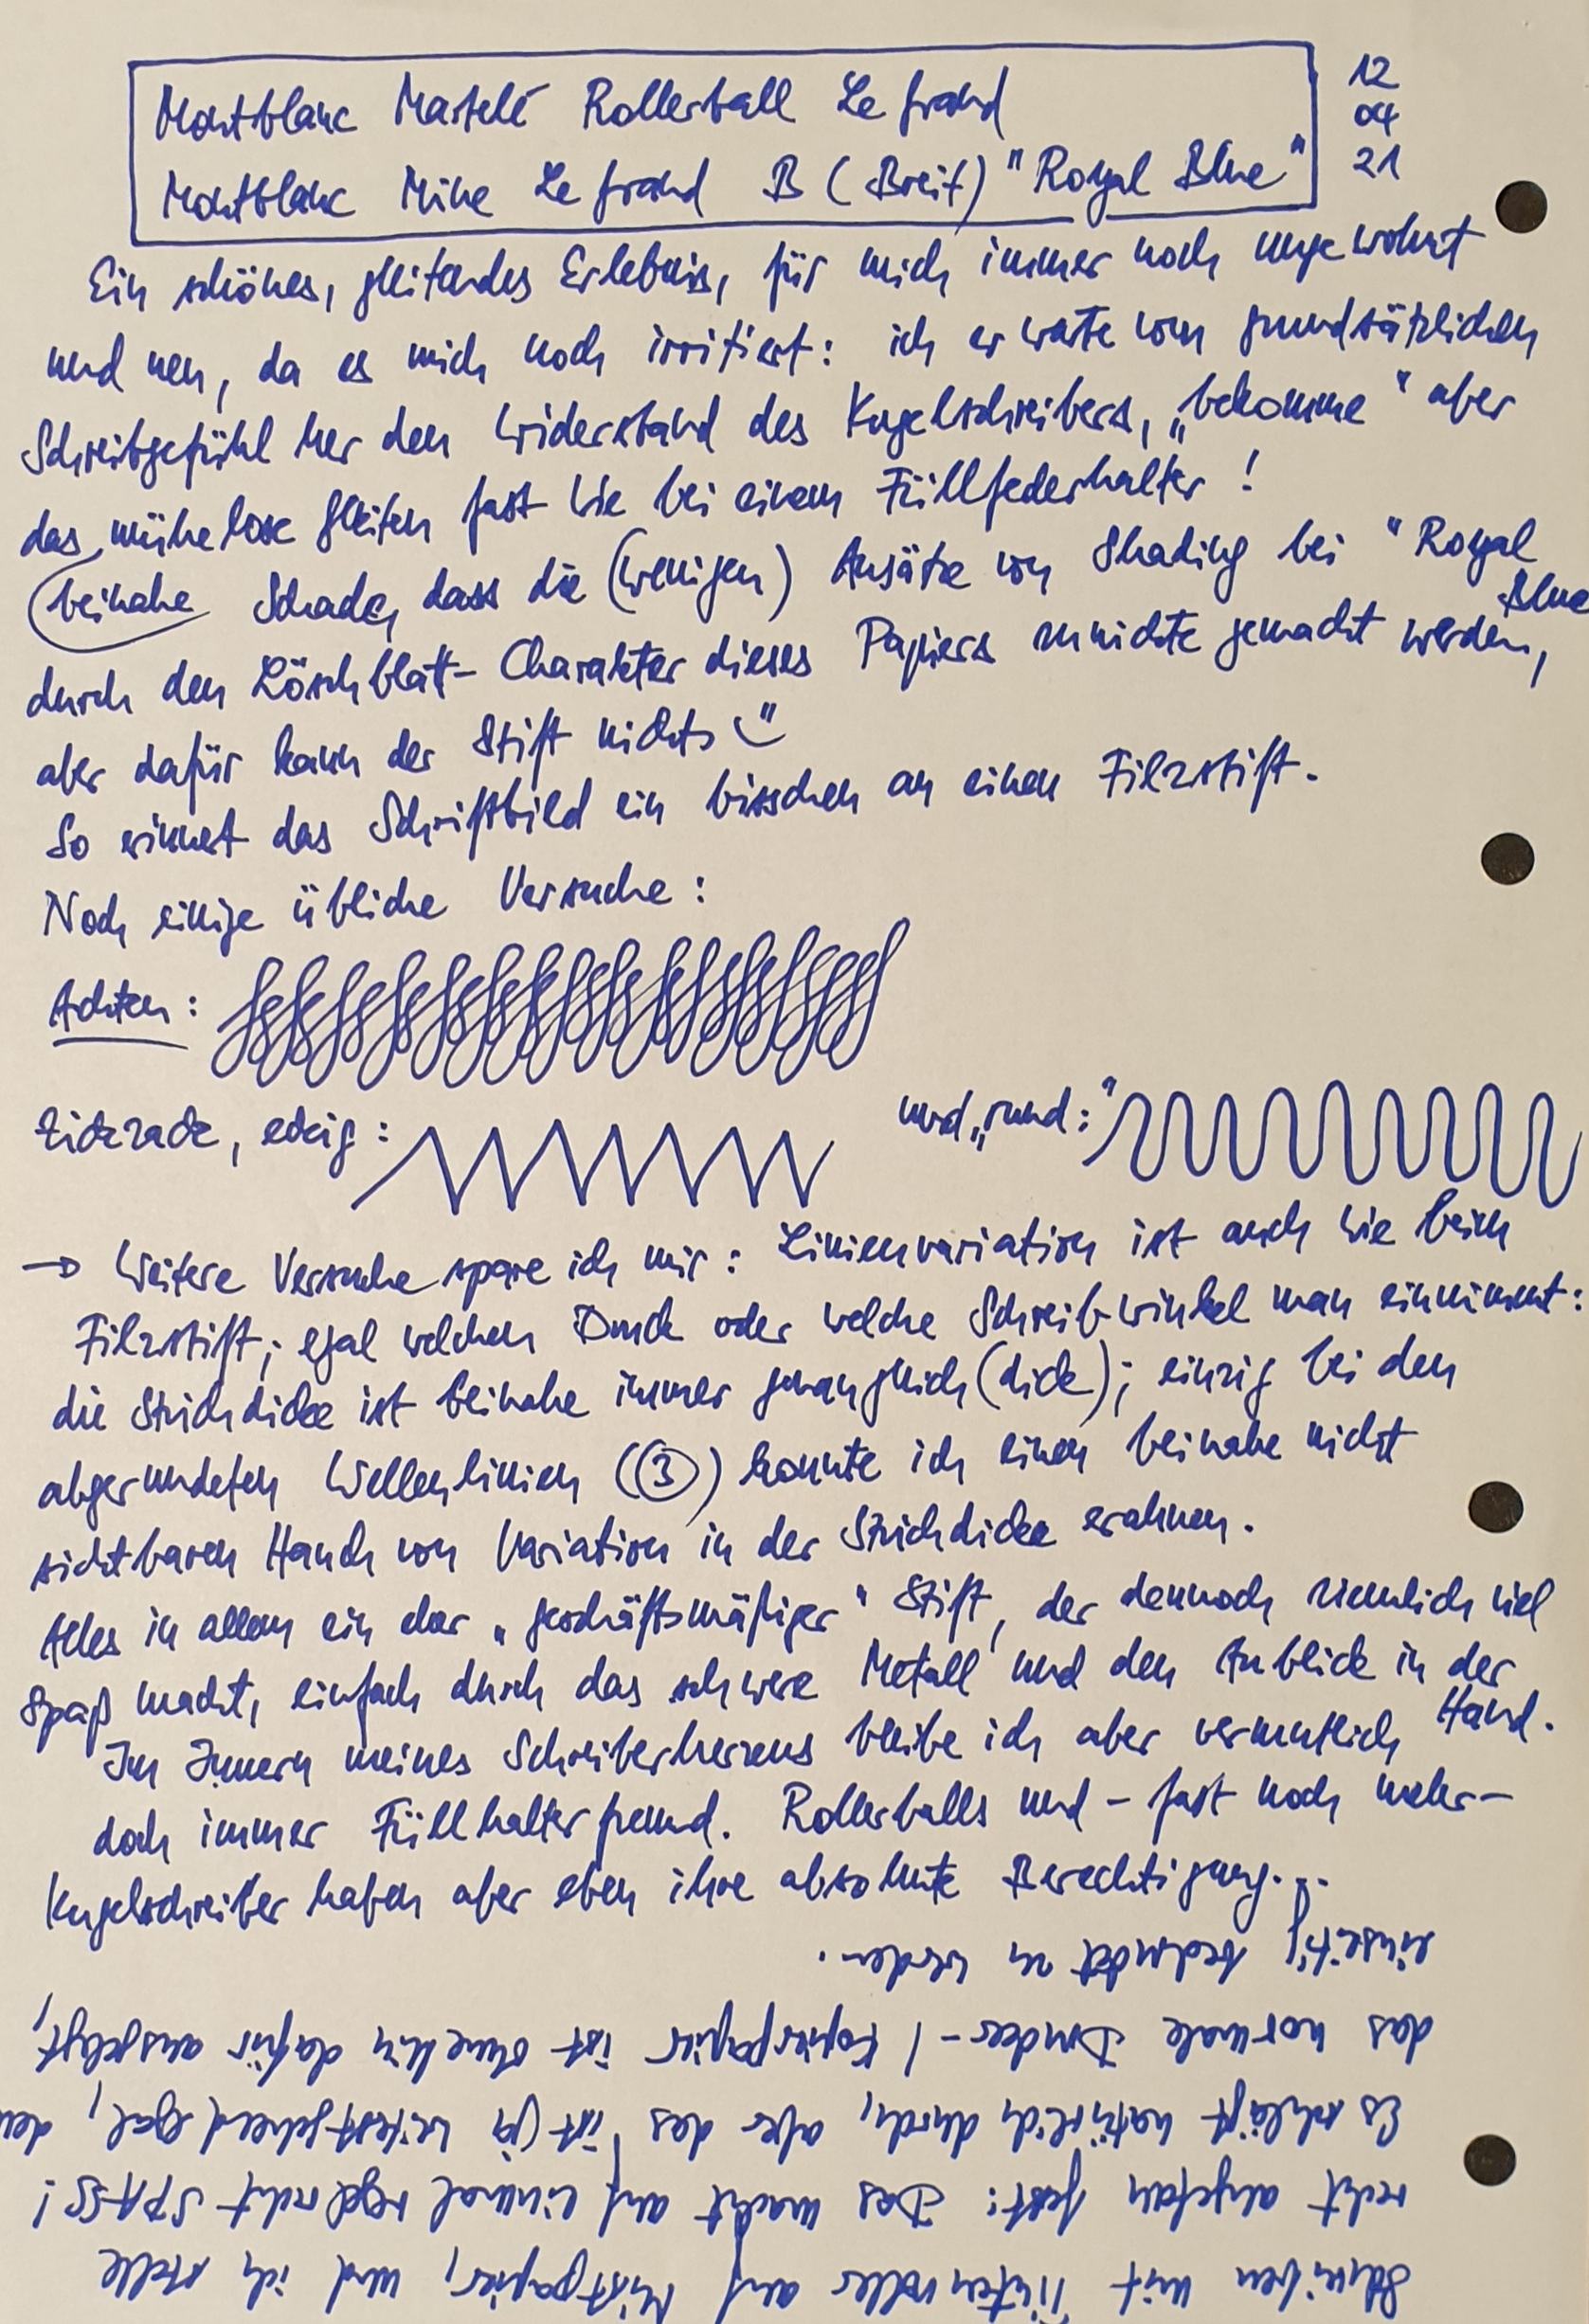 Montblanc Martelé Rollerball Le Grand
Montblanc Mine Le Grand B (Breit) "Royal Blue"
12
04
21
Ein schönes, gleitendes Erlebnis, für mich immer noch ungewohnt
und neu, da es mich noch irritiert: ich erwarte vom grundsätzlichen
Schreibgefühl her den Widerstand des Kugelschreibers, „bekomme" aber
das mühelose Gleiten fast wie bei einem Füllfederhalter!
(beinahe Schade, dass die (wenigen) Ansätze von Shading bei "Royal Blue"
durch den Löschblatt-Charakter dieses Papiers zunichte gemacht werden,
aber dafür kann der Stift nichts
So erinnert das Schriftbild ein bisschen an einen Filzstift.
Noch einige übliche Versuche:
Achten:
Zickzack, eckig:
und „rund:"
→ Weitere Versuche spare ich mir: Linienvariation ist auch wie beim
Filzstift; egal welchen Druck oder welche Schreibwinkel man einnimmt:
die Strichdicke ist beinahe immer genau gleich (dick); einzig bei den
abgerundeten Wellenlinien (③) konnte ich einen beinahe nicht
sichtbaren Hauch von Variation in der Strichdicke erahnen.
Alles in allem ein eher „geschäftsmäßiger" Stift, der dennoch ziemlich viel
Spaß macht, einfach durch das schwere Metall und den Anblick in der Hand.
Im Innern meines Schreiberherzens bleibe ich aber vermutlich
doch immer Füllhalterfreund. Rollerballs und - fast noch mehr -
Kugelschreiber haben aber eben ihre absolute Berechtigung...
Schreiben mit Tintenroller auf Mistpapier, und ich stelle
recht angetan fest: Das macht auf einmal regelrecht SPASS!
Es schlägt natürlich durch, aber das ist ja weitestgehend egal, denn
das normale Drucker-/Kopierpapier ist ohnehin dafür ausgelegt,
einseitig bedruckt zu werden.